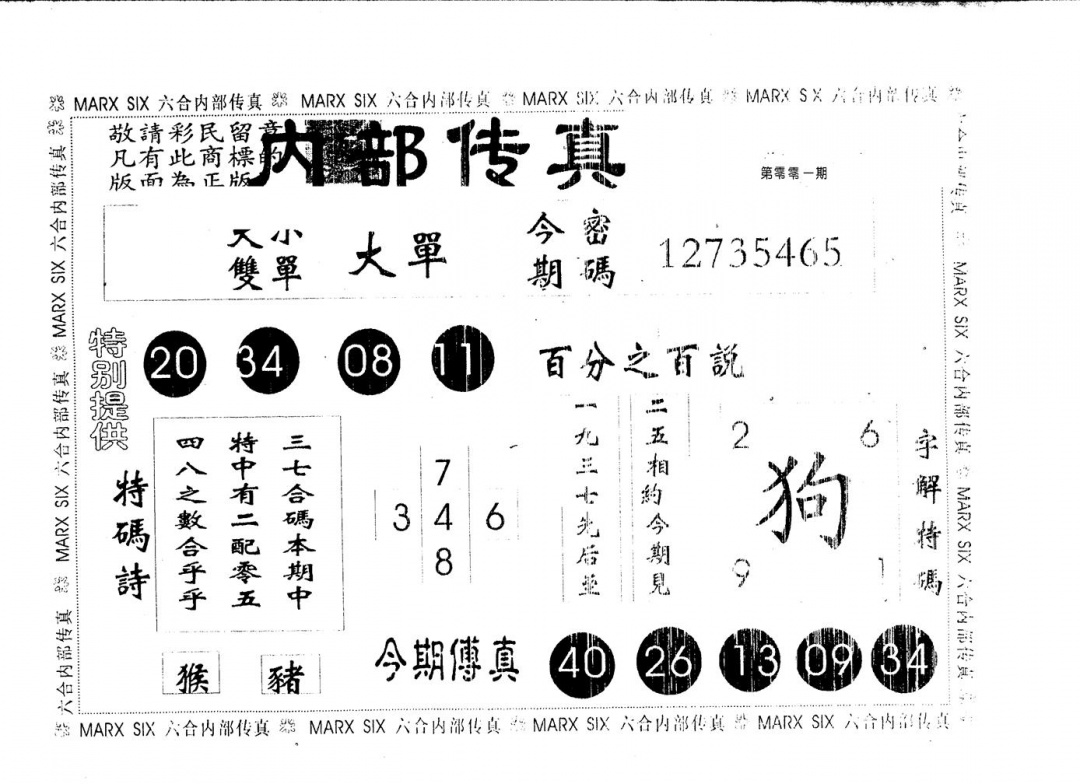 MARX SIX 六合内部传真 MARX SIX 六合内部传真 MARX SIX 六合内部传真 MARX SIX 六合内部传真
敬請彩民留意
凡有此商標的
版面為正版
内部传真
第零零一期
大小
雙單
大單
今期
密碼
12735465
特别提供
20 34 08 11
百分之百説
特碼詩
三七合碼本期中
特中有二配零五
四八之數合乎乎
7
3 4 6
8
二五相約今期見
一九三七先后並
2 6
狗
9 1
字解特碼
猴 豬
今期傳真
40 26 13 09 34
MARX SIX 六合内部传真 MARX SIX 六合内部传真 MARX SIX 六合内部传真 MARX SIX 六合内部传真
六合内部传真 MARX SIX 六合内部传真 MARX SIX 六合内部传真
MARX SIX 六合内部传真 MARX SIX 六合内部传真